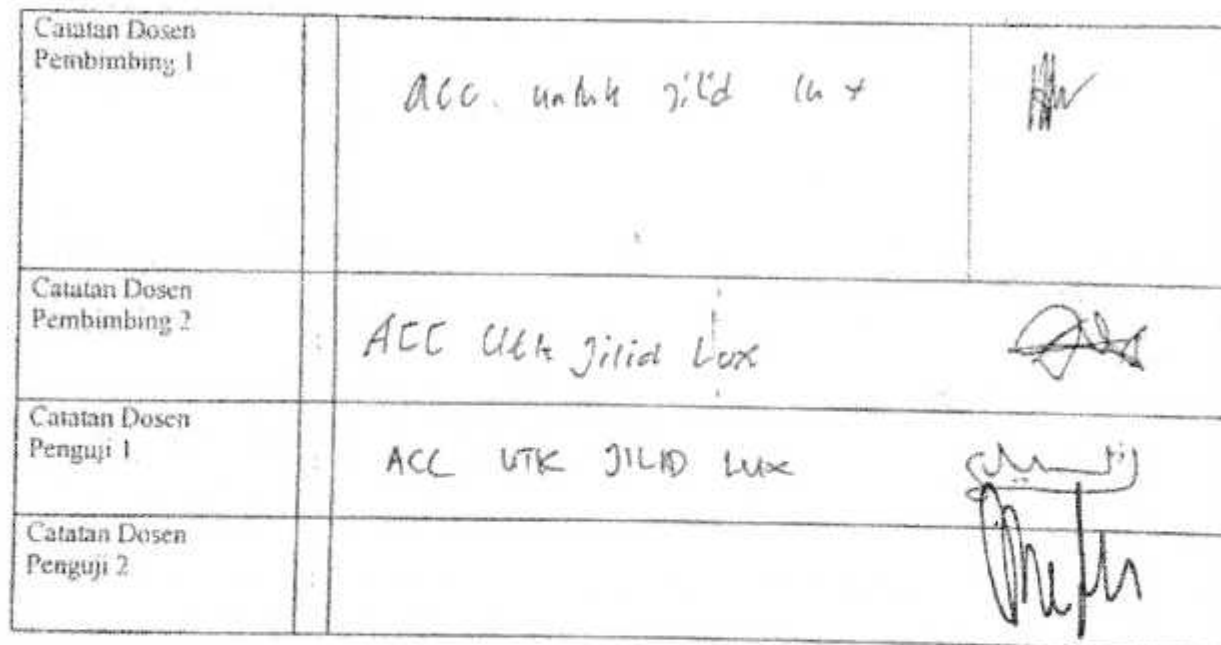 Catatan Dosen
Pembimbing 1
ACC. untuk jilid lux
Catatan Dosen
Pembimbing 2
:
ACC Utk Jilid Lux
Catatan Dosen
Penguji 1
ACC UTK JILID LUX
Catatan Dosen
Penguji 2
: